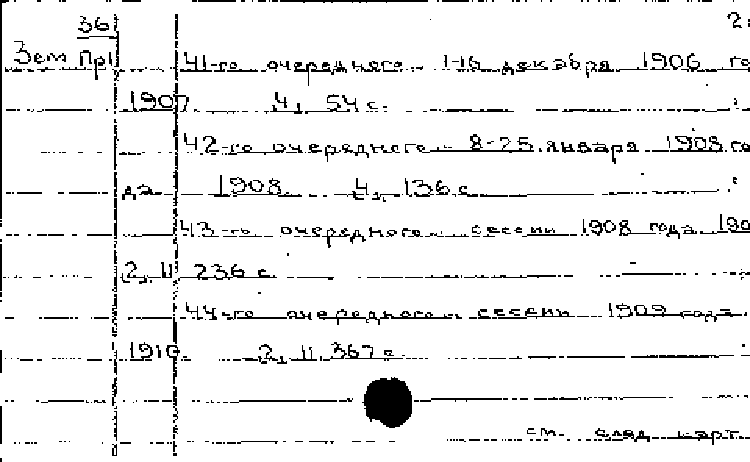 36 2
Зем Пр1 41-го очередного.. 1-16 декабря 1906 го
1907. 4, 54 с.
42-го очередного.. 8-25 января 1908 го
да 1908. 4, 136 с
43-го очередного.. сессии 1908 года. 190
2, II 236 с.
44-го очередного.. сессии 1909 года.
1910. 2, II, 367 с
см. след карт